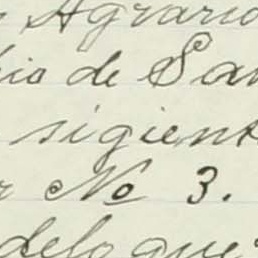 Agrario
de San
sigient
No 3.
delo que